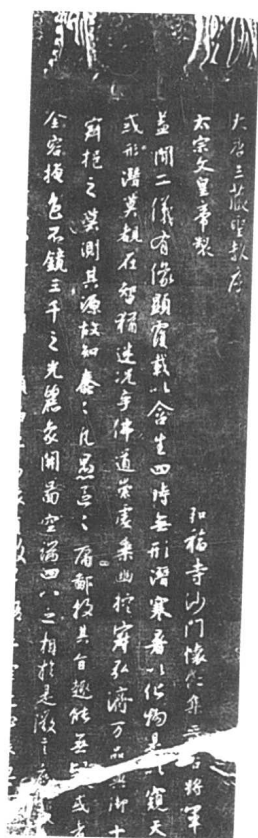 大唐三藏聖教序
太宗文皇帝製 弘福寺沙門懷仁集晉右將軍
蓋聞二儀有像顯覆載以含生四時無形潛寒暑以化物是以窺天
或形潛莫覩在智猶迷況乎佛道崇虛乘幽控寂弘濟万品典御十
寂挹之莫測其源故知蠢々凡愚區々庸鄙投其旨趣能無疑或者
金容掩色不鏡三千之光麗象開圖空端四八之相於是微言廣